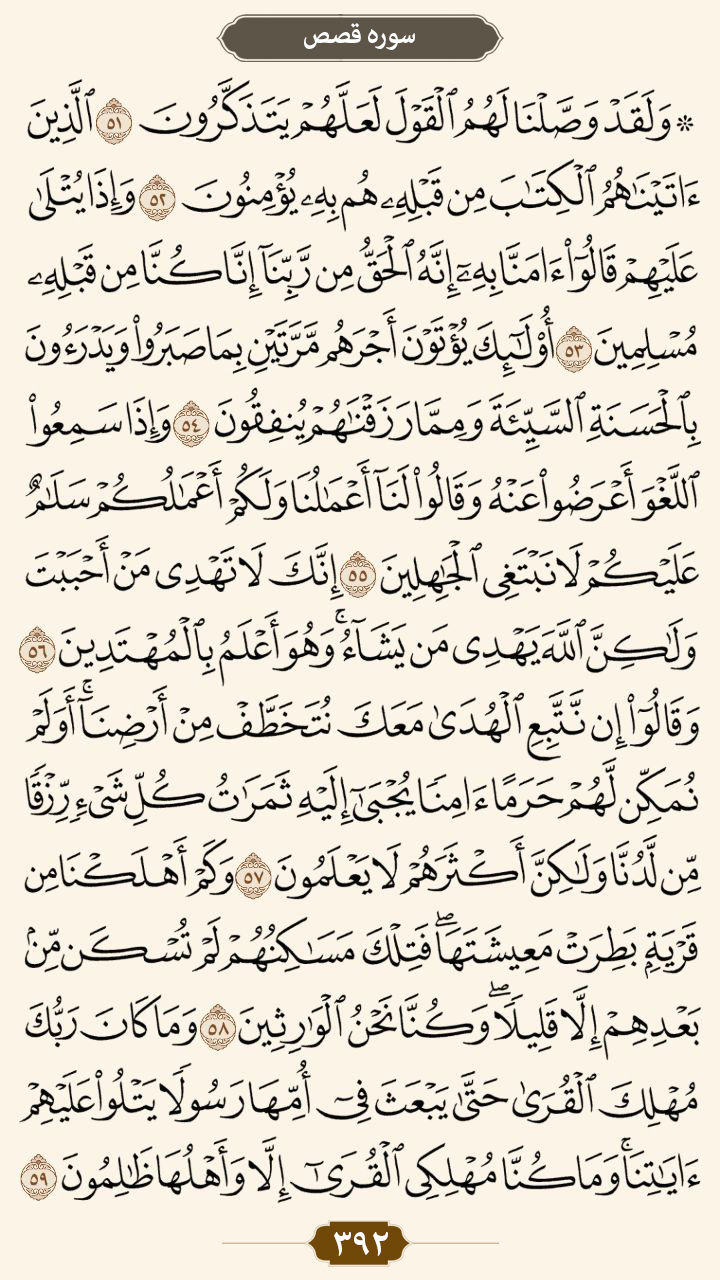 سوره قصص
۞ وَلَقَدْ وَصَّلْنَا لَهُمُ ٱلْقَوْلَ لَعَلَّهُمْ يَتَذَكَّرُونَ ٥١ ٱلَّذِينَ
ءَاتَيْنَٰهُمُ ٱلْكِتَٰبَ مِن قَبْلِهِۦ هُم بِهِۦ يُؤْمِنُونَ ٥٢ وَإِذَا يُتْلَىٰ
عَلَيْهِمْ قَالُوٓا۟ ءَامَنَّا بِهِۦٓ إِنَّهُ ٱلْحَقُّ مِن رَّبِّنَآ إِنَّا كُنَّا مِن قَبْلِهِۦ
مُسْلِمِينَ ٥٣ أُو۟لَٰٓئِكَ يُؤْتَوْنَ أَجْرَهُم مَّرَّتَيْنِ بِمَا صَبَرُوا۟ وَيَدْرَءُونَ
بِٱلْحَسَنَةِ ٱلسَّيِّئَةَ وَمِمَّا رَزَقْنَٰهُمْ يُنفِقُونَ ٥٤ وَإِذَا سَمِعُوا۟
ٱللَّغْوَ أَعْرَضُوا۟ عَنْهُ وَقَالُوا۟ لَنَآ أَعْمَٰلُنَا وَلَكُمْ أَعْمَٰلُكُمْ سَلَٰمٌ
عَلَيْكُمْ لَا نَبْتَغِى ٱلْجَٰهِلِينَ ٥٥ إِنَّكَ لَا تَهْدِى مَنْ أَحْبَبْتَ
وَلَٰكِنَّ ٱللَّهَ يَهْدِى مَن يَشَآءُ ۚ وَهُوَ أَعْلَمُ بِٱلْمُهْتَدِينَ ٥٦
وَقَالُوٓا۟ إِن نَّتَّبِعِ ٱلْهُدَىٰ مَعَكَ نُتَخَطَّفْ مِنْ أَرْضِنَآ ۚ أَوَلَمْ
نُمَكِّن لَّهُمْ حَرَمًا ءَامِنًا يُجْبَىٰٓ إِلَيْهِ ثَمَرَٰتُ كُلِّ شَىْءٍ رِّزْقًا
مِّن لَّدُنَّا وَلَٰكِنَّ أَكْثَرَهُمْ لَا يَعْلَمُونَ ٥٧ وَكَمْ أَهْلَكْنَا مِن
قَرْيَةٍۭ بَطِرَتْ مَعِيشَتَهَا ۖ فَتِلْكَ مَسَٰكِنُهُمْ لَمْ تُسْكَن مِّنۢ
بَعْدِهِمْ إِلَّا قَلِيلًا ۖ وَكُنَّا نَحْنُ ٱلْوَٰرِثِينَ ٥٨ وَمَا كَانَ رَبُّكَ
مُهْلِكَ ٱلْقُرَىٰ حَتَّىٰ يَبْعَثَ فِىٓ أُمِّهَا رَسُولًا يَتْلُوا۟ عَلَيْهِمْ
ءَايَٰتِنَا ۚ وَمَا كُنَّا مُهْلِكِى ٱلْقُرَىٰٓ إِلَّا وَأَهْلُهَا ظَٰلِمُونَ ٥٩
٣٩٢